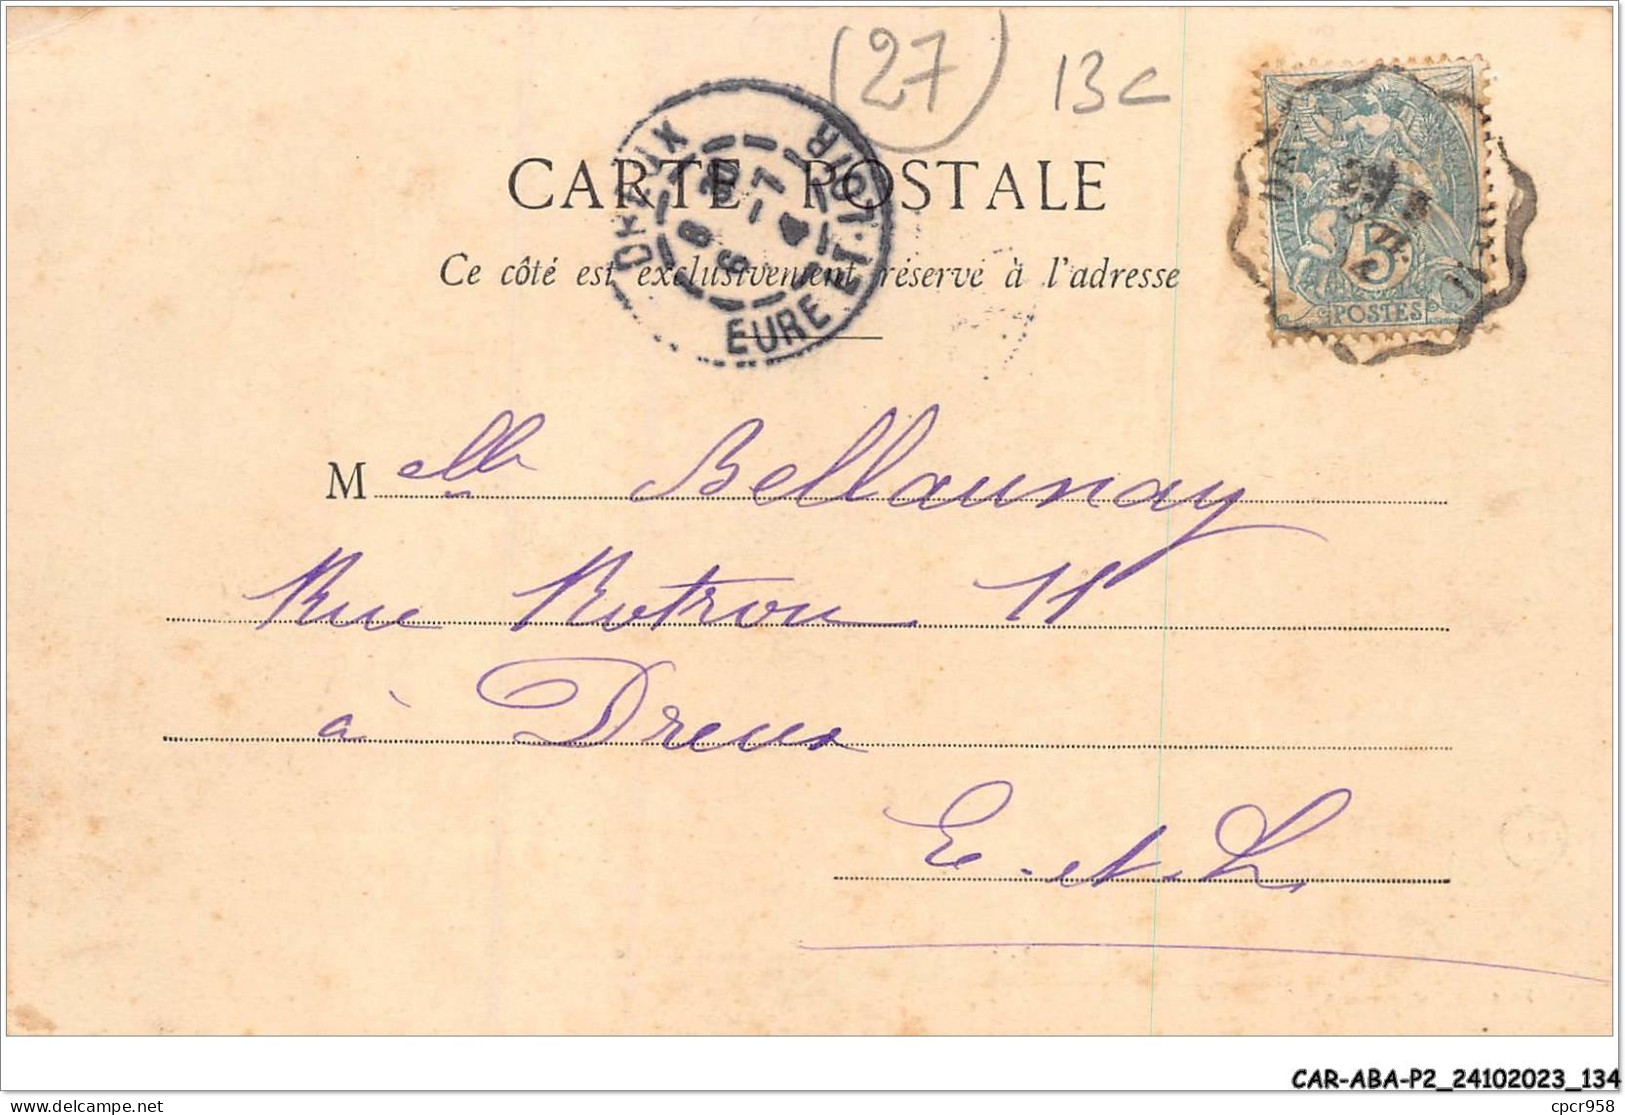 (27) 13c
CARTE POSTALE
Ce côté est exclusivement réservé à l'adresse
DREUX
EURE ET-LOIR
5
POSTES
Melle Bellaunay
Rue Rotrou 11
à Dreux
E. et. L.
CAR-ABA-P2_24102023_134
delcampe.net
cpcr958